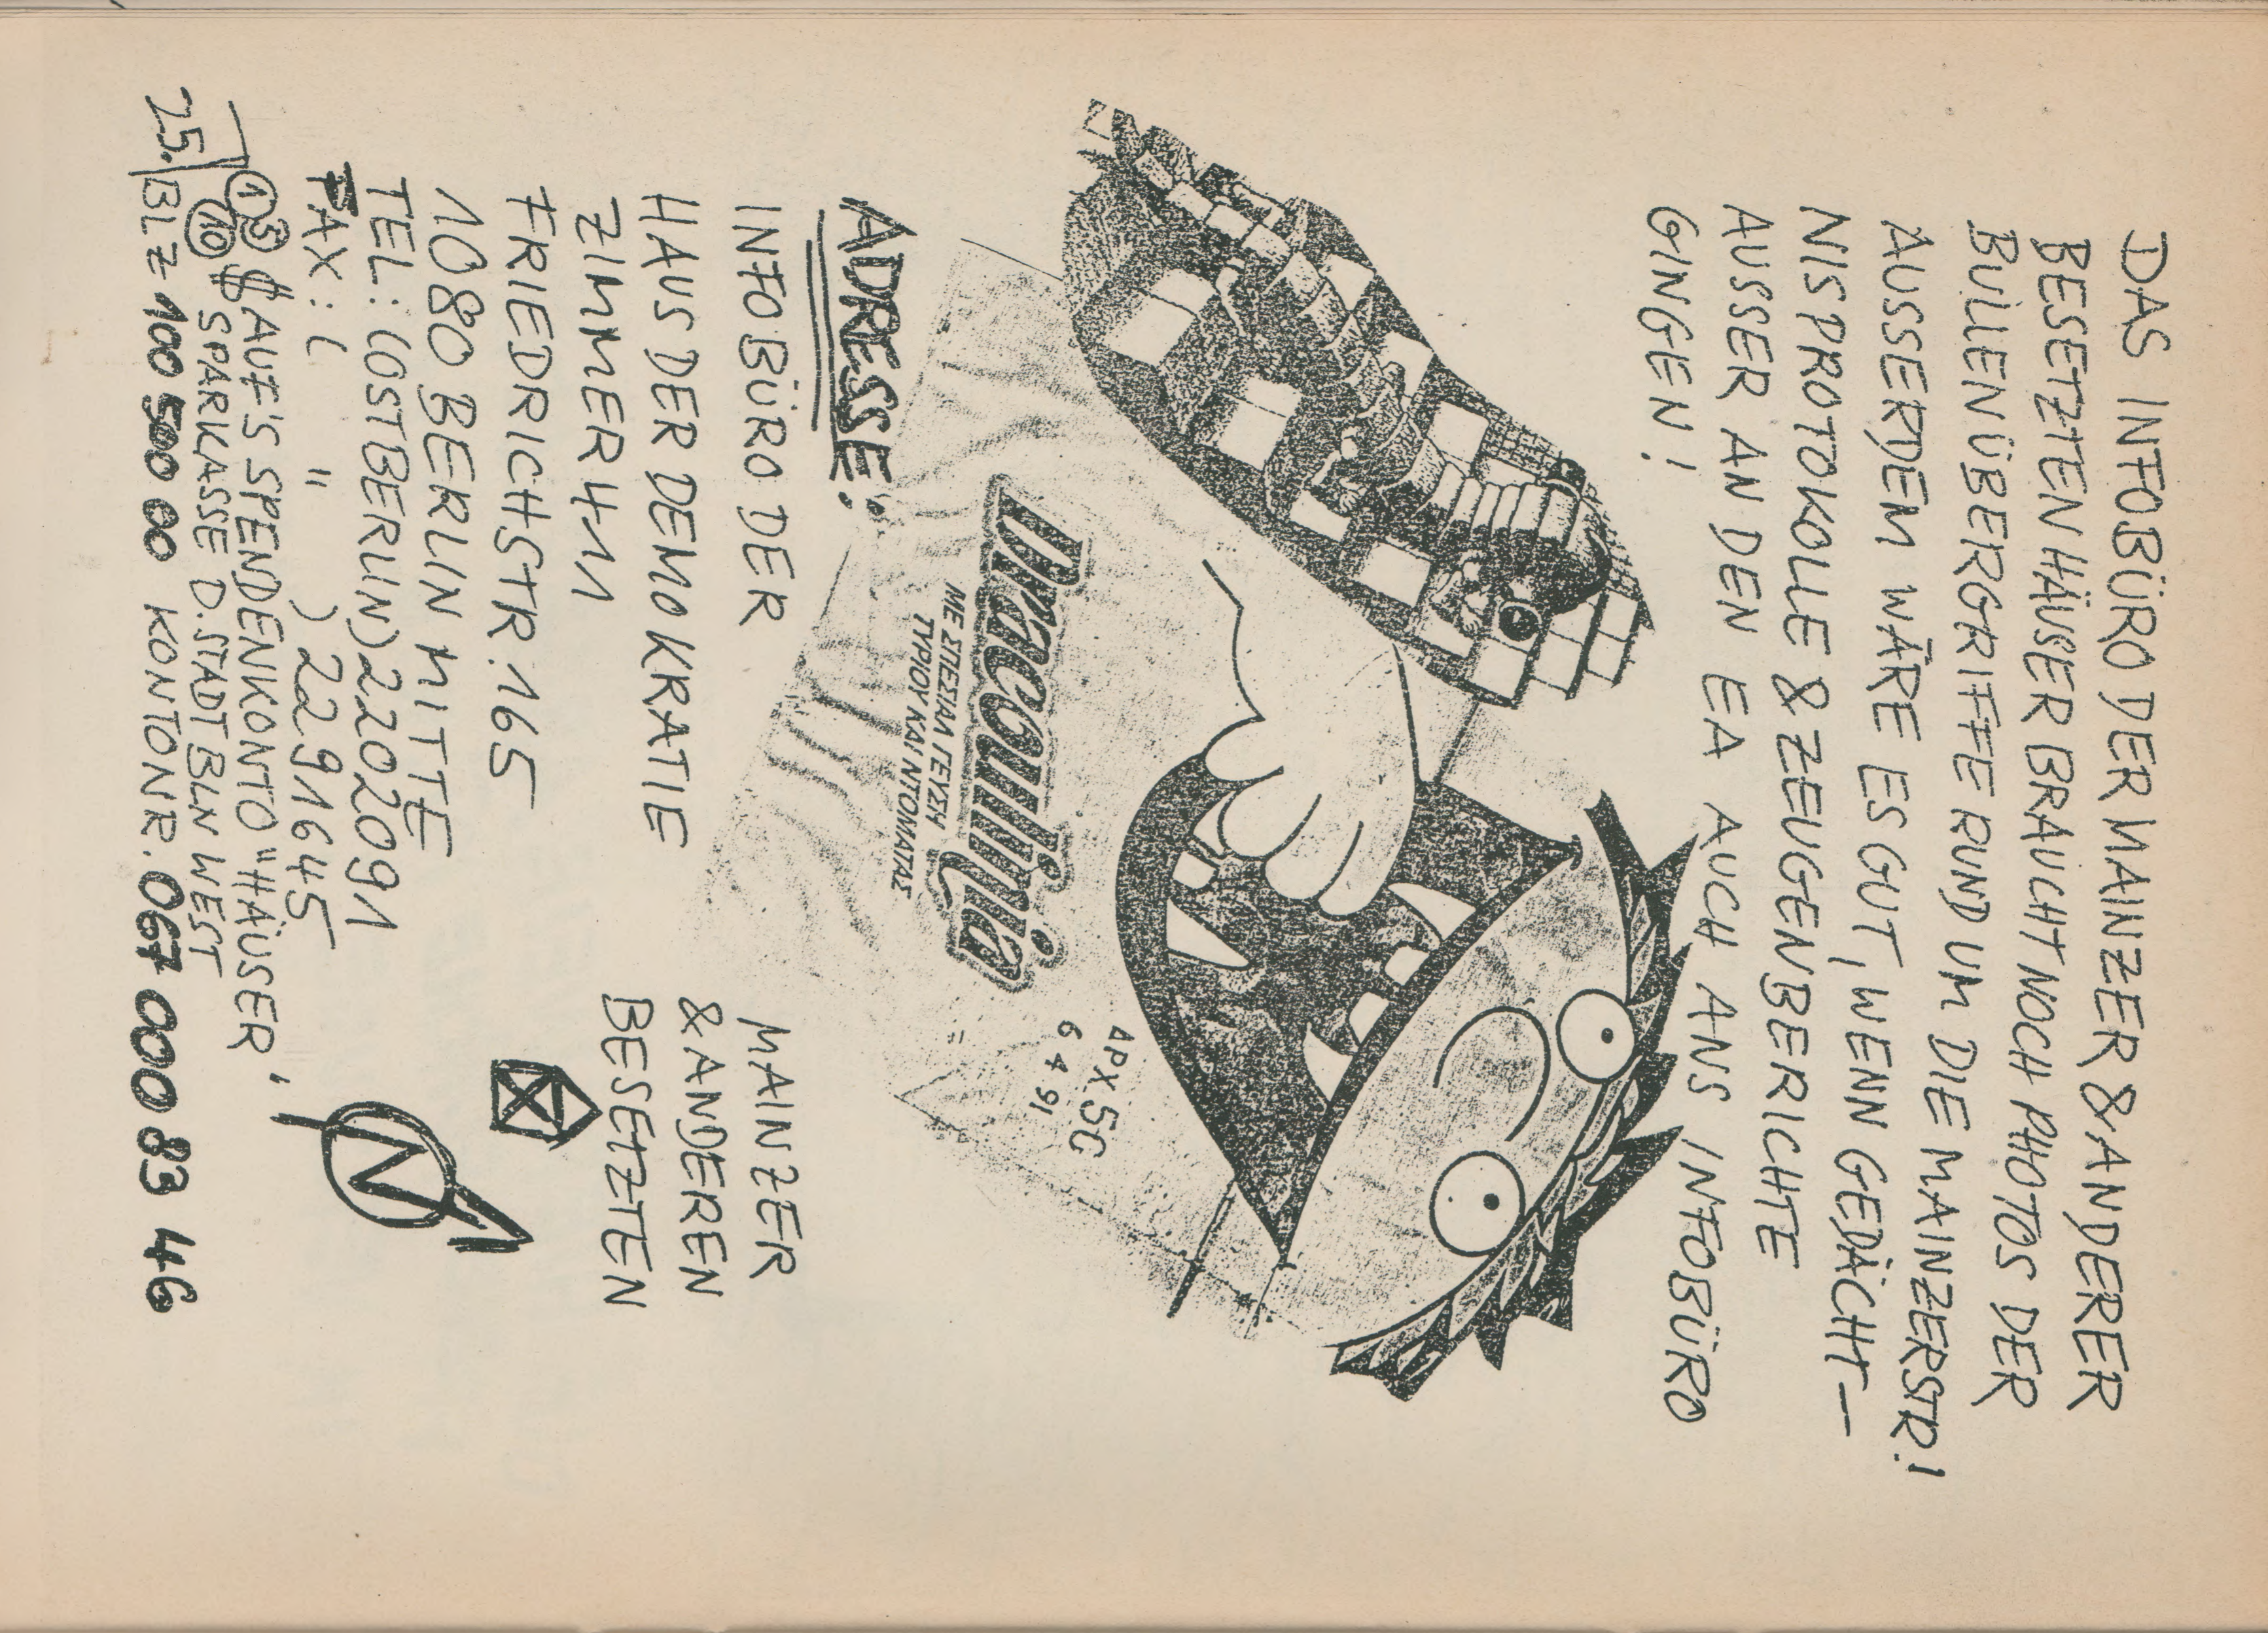 DAS INFOBÜRO DER MAINZER & ANDERER
BESETZTEN HÄUSER BRAUCHT NOCH PHOTOS DER
BULLENÜBERGRIFFE RUND UM DIE MAINZERSTR!
AUSSERDEM WÄRE ES GUT, WENN GEDÄCHT-
NISPROTOKOLLE & ZEUGENBERICHTE
AUSSER AN DEN EA AUCH ANS INFOBÜRO
GINGEN!
Dracoulinia
ΜΕ ΣΠΕΣΙΑΛ ΓΕΥΣΗ
ΤΥΡΙΟΥ ΚΑΙ ΝΤΟΜΑΤΑΣ
ΑΡΧ 5C
6 4 91
ADRESSE:
INFOBÜRO DER MAINZER
& ANDEREN
BESETZTEN
HAUS DER DEMOKRATIE
ZIMMER 411
FRIEDRICHSTR. 165
1080 BERLIN MITTE
TEL: (OSTBERLIN) 2202091
FAX: ( " ) 2291645
$ AUF'S SPENDENKONTO "HÄUSER"
SPARKASSE D. STADT BLN WEST
BLZ 100 500 00 KONTONR. 067 000 83 46
25.